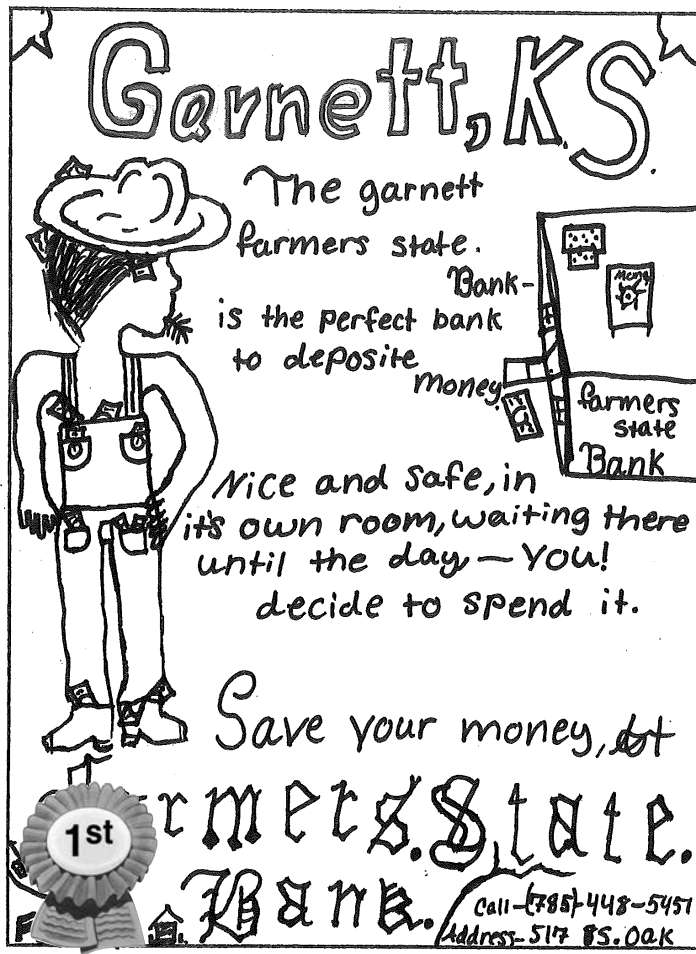 Garnett, K.S.
The garnett
farmers state.
Bank-
is the perfect bank
to deposite
money.
Mcmg
farmers
state
Bank
Nice and safe, in
it's own room, waiting there
until the day — You!
decide to spend it.
Save your money, at
Farmers. State.
Bank.
1st
Call-(785)-448-5451
Address- 517 S. Oak